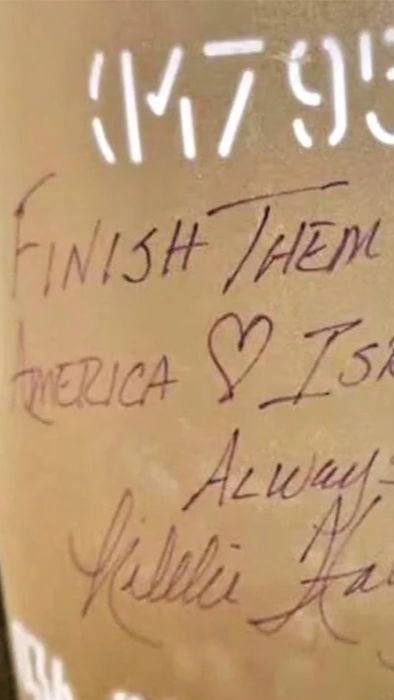 (M795
FINISH THEM
AMERICA ♡ ISR
ALWAYS
Nikki Ha